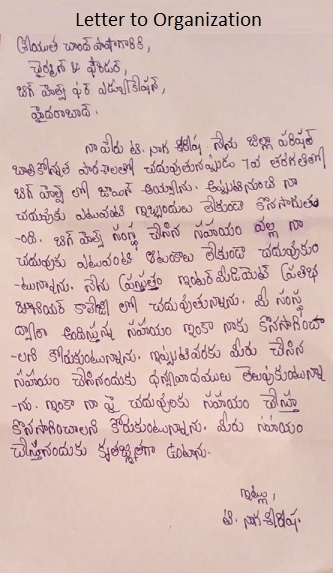 Letter to Organization
శ్రీయుత చాంద్ పాషాగారికి,
ఛైర్మన్ & ఫౌండర్,
బిగ్ హెల్ప్ ఫర్ ఎడ్యుకేషన్,
హైదరాబాద్.
నా పేరు టి. నాగ శిరీష. నేను జిల్లా పరిషత్
బాలికోన్నత పాఠశాలలో చదువుతున్నపుడు 7వ తరగతిలో
బిగ్ హెల్ప్ లో జాయిన్ అయ్యాను. అప్పటినుంచి నా
చదువుకు ఎటువంటి ఇబ్బందులు లేకుండా కొనసాగుతు
-ంది. బిగ్ హెల్ప్ సంస్థ చేసిన సహాయం వల్ల నా
చదువుకు ఎటువంటి ఆటంకాలు లేకుండా చదువుకుం
-టున్నాను. నేను ప్రస్తుతం ఇంటర్ మీడియెట్ ప్రతిభ
జూనియర్ కాలేజి లో చదువుతున్నాను. మీ సంస్థ
ద్వారా అందిస్తున్న సహాయం ఇంకా నాకు కొనసాగించా
-లని కోరుకుంటున్నాను. ఇప్పటివరకు మీరు చేసిన
సహాయం చేసినందుకు ధన్యవాదములు తెలుపుకుంటున్నా
-ను. ఇంకా నా పై చదువులకు సహాయం చేస్తూ
కొనసాగించాలని కోరుకుంటున్నాను. మీరు సహాయం
చేస్తానందుకు కృతజ్ఞతగా ఉంటాను.
ఇట్లు,
టి. నాగ శిరీష.